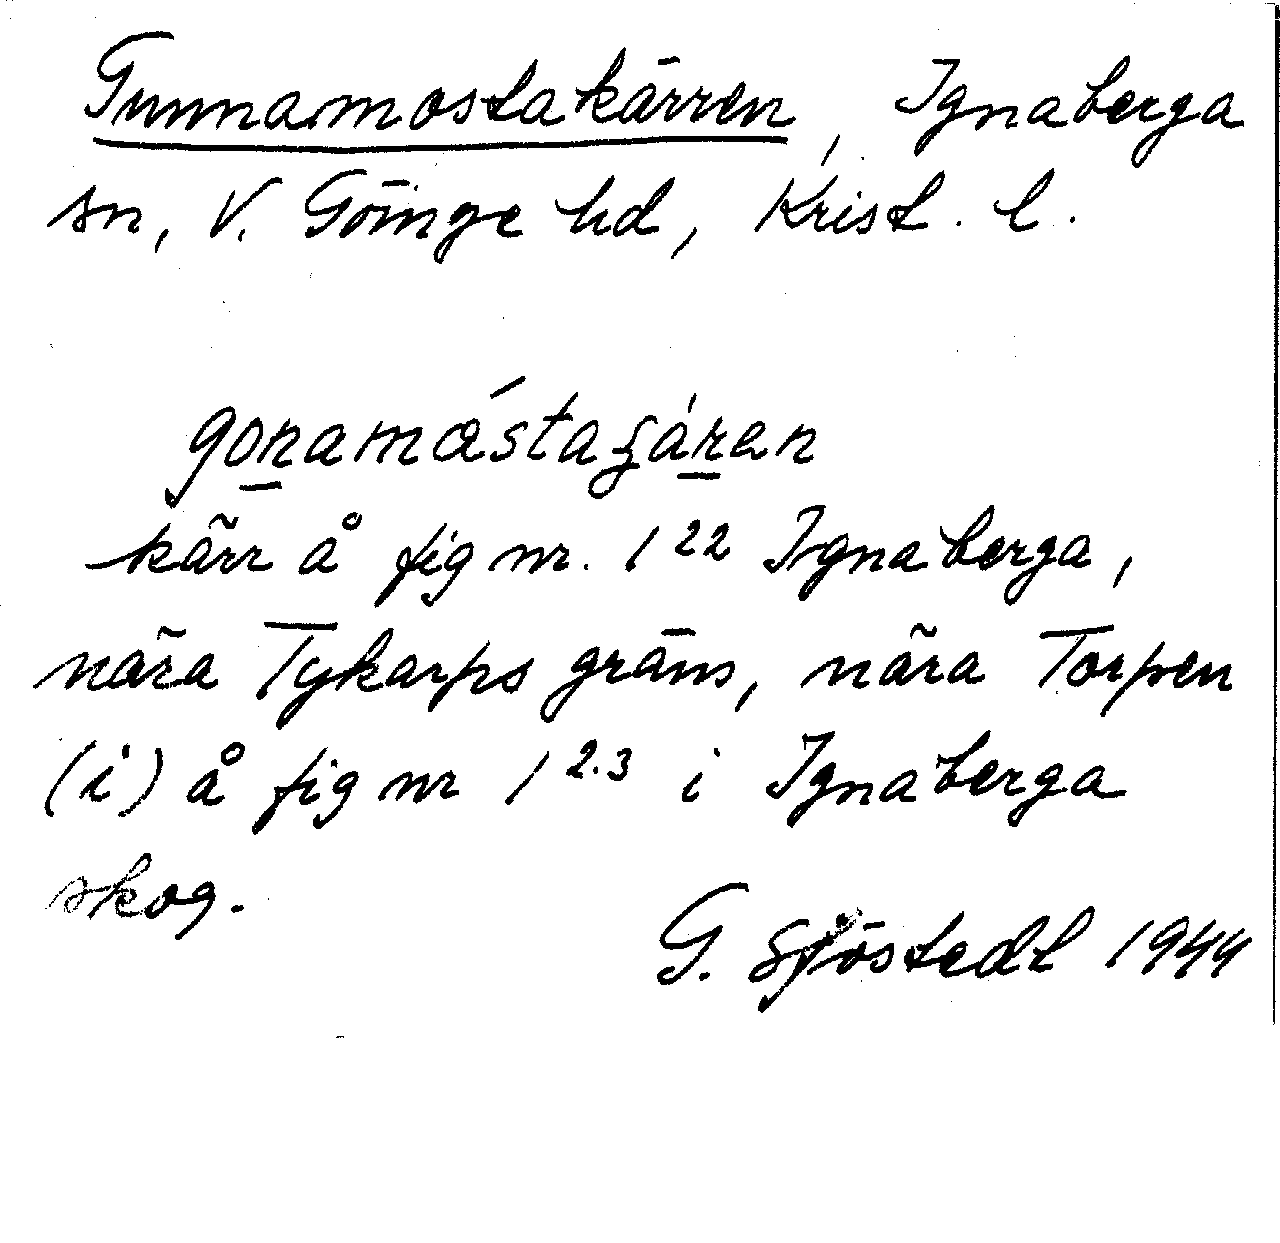 Gunnamostakärren, Ignaberga
sn, V. Göinge hd, Krist. l.
gonamǽstaʒáren
kärr å fig nr. 1²² Ignaberga,
nära Tykarps gräns, nära Torpen
(i) å fig nr 1²·³ i Ignaberga
skog.
G. Sjöstedt 1944